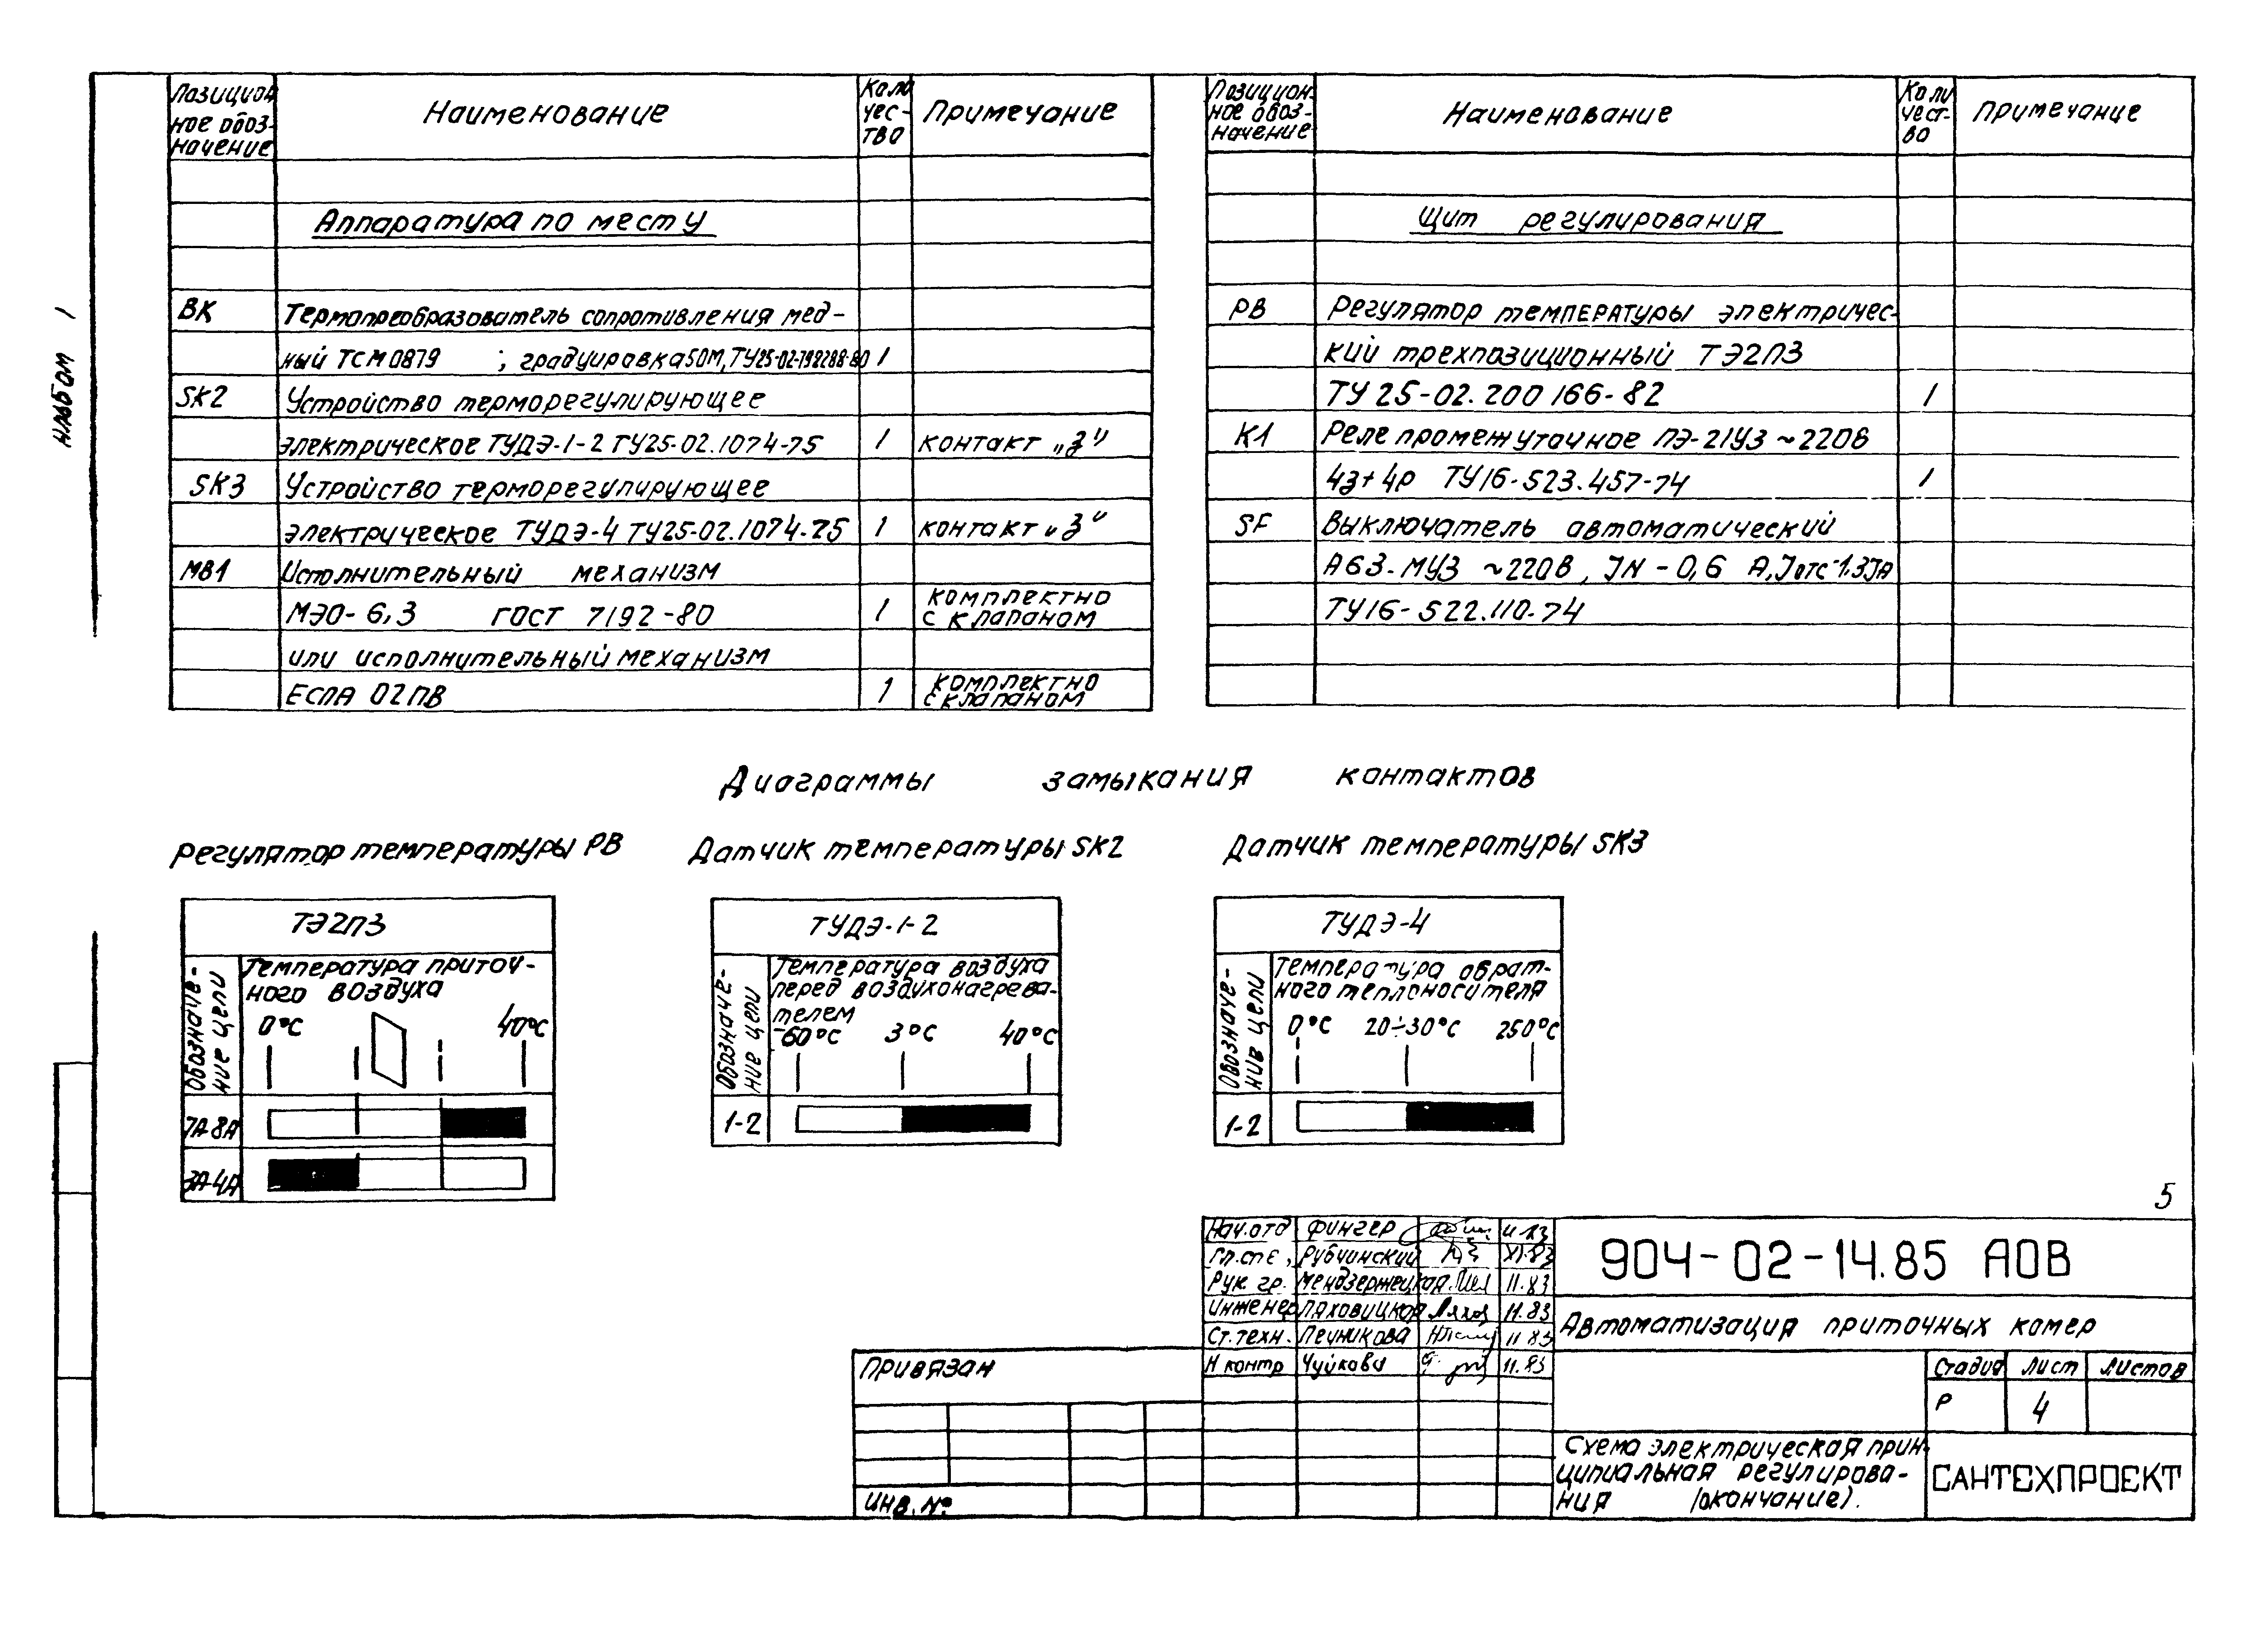 Альбом 1
Позицион
ное обоз-
начение
Наименование
Коли
чес-
тво
Примечание
Аппаратура по месту
ВК Термопреобразователь сопротивления мед-
ный ТСМ 0879 ; градуировка 50М, ТУ25-02-792288-80 1
SK2 Устройство терморегулирующее
электрическое ТУДЭ-1-2 ТУ25-02.1074-75 1 контакт „З"
SK3 Устройство терморегулирующее
электрическое ТУДЭ-4 ТУ25-02.1074-75 1 контакт „З"
МВ1 Исполнительный механизм
МЭО-6,3 ГОСТ 7192-80 1 комплектно
с клапаном
или исполнительный механизм
ЕСПА 02ПВ 1 комплектно
с клапаном
Позицион-
ное обоз-
начение
Наименование
Коли
чест-
во
Примечание
Щит регулирования
РВ Регулятор температуры электричес-
кий трехпозиционный ТЭ2П3
ТУ 25-02.200 166-82 1
К1 Реле промежуточное ПЭ-21У3 ~220в
4з+4р ТУ16-523.457-74 1
SF Выключатель автоматический
А63-МУ3 ~220в, JN-0,6 А, Jотс-1.3JА
ТУ16-522.110-74
Диаграммы замыкания контактов
Регулятор температуры РВ
ТЭ2П3
Обозначе-
ние цепи
Температура приточ-
ного воздуха
0°С 40°С
7А-8А
3А-4А
Датчик температуры SK2
ТУДЭ-1-2
Обозначе-
ние цепи
Температура воздуха
перед воздухонагрева-
телем
-60°С 3°С 40°С
1-2
Датчик температуры SK3
ТУДЭ-4
Обозначе-
нив цепи
Температура обрат-
ного теплоносителя
0°С 20÷30°С 250°С
1-2
5
Нач.отд Фингер
Гл.спе, Рубчинский XI.83
Рук. гр. Мендзержецкая 11.83
Инженер Ляховицкая 11.83
Ст.техн. Печникова 11.83
Н контр Чуйкова 11.83
904-02-14.85 АОВ
Автоматизация приточных камер
Стадия Лист Листов
Р 4
Схема электрическая прин-
ципиальная регулирова-
ния (окончание).
САНТЕХПРОЕКТ
Привязан
Инв. №